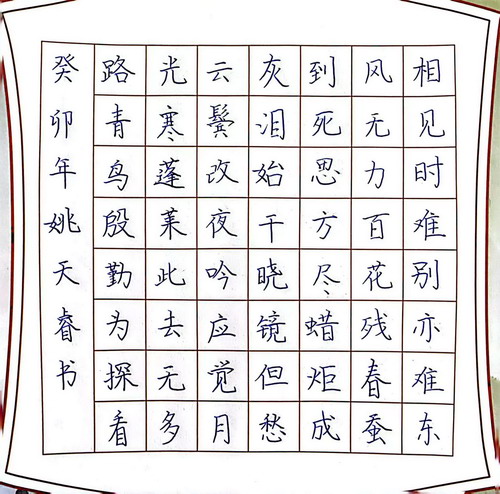 相见时难别亦难东
风无力百花残春蚕
到死思方尽蜡炬成
灰泪始干晓镜但愁
云鬓改夜吟应觉月
光寒蓬莱此去无多
路青鸟殷勤为探看
癸卯年姚天睿书